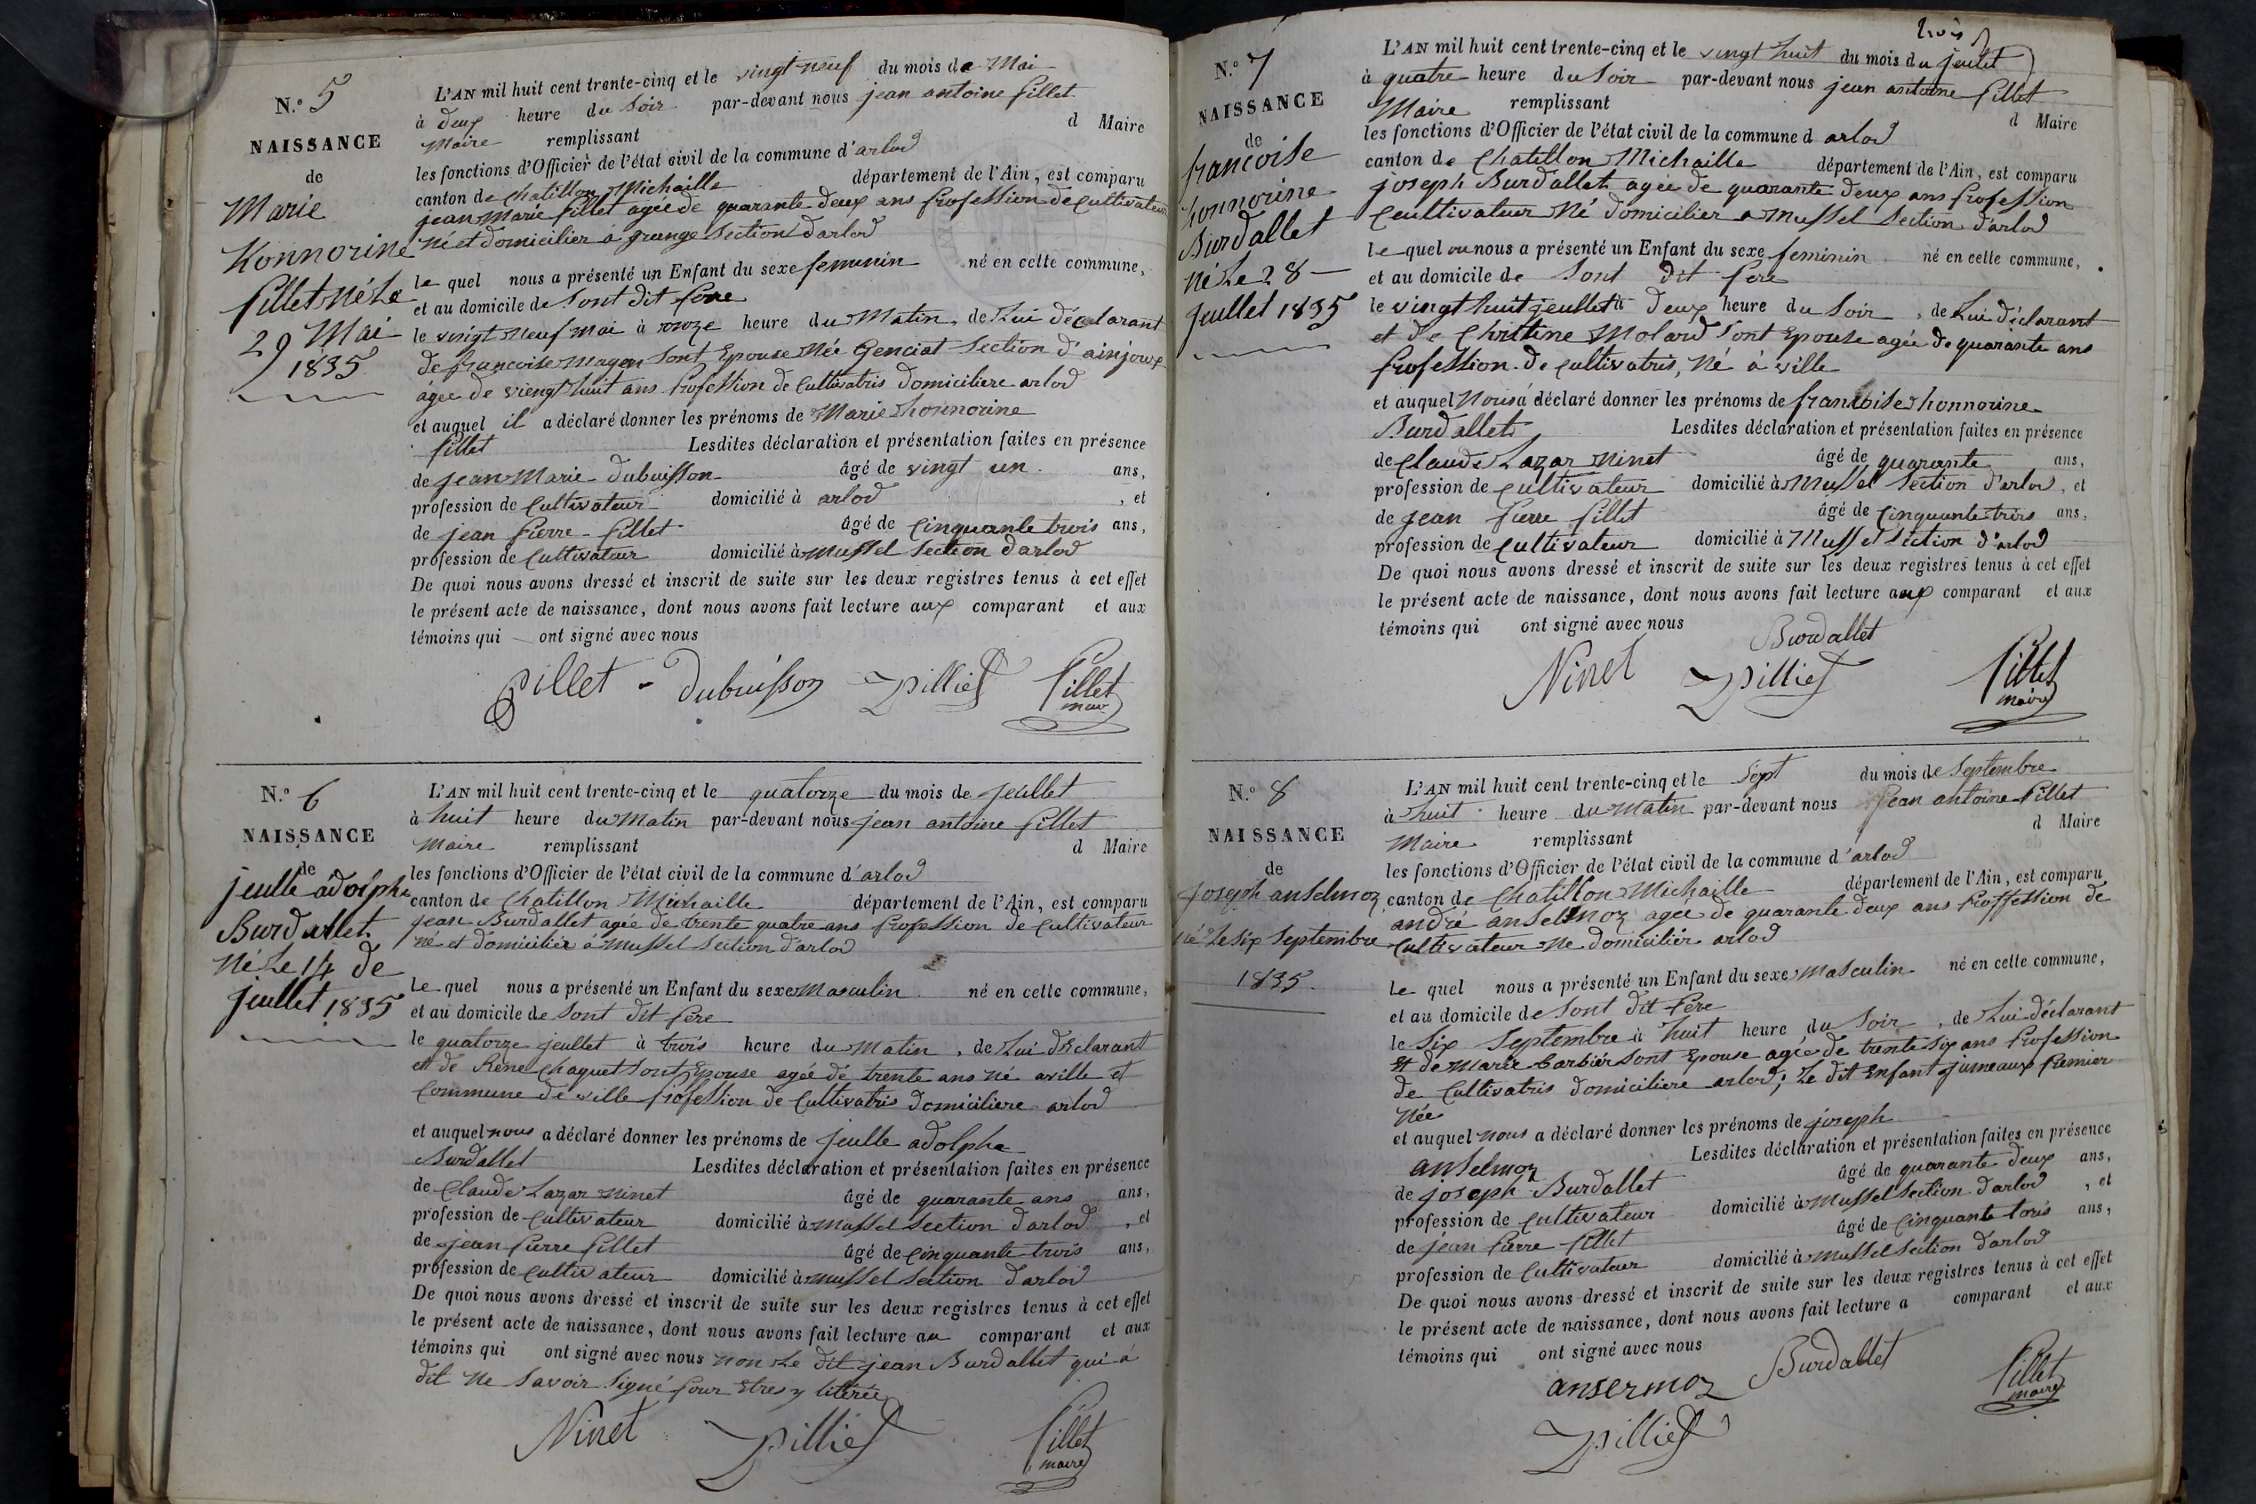 N.o 5
NAISSANCE
de
Marie
honnorine
pillet né le
29 Mai
1835
L'AN mil huit cent trente-cinq et le vingt neuf du mois de Mai
à deux heure du Soir par-devant nous jean antoine pillet
Maire remplissant d Maire
les fonctions d'Officier de l'état civil de la commune d'arlod
canton de Chatillon Michaille département de l'Ain, est comparu
jean Marie pillet agée de quarante deux ans profession de cultivateur
né et domicilier à grange Section d'arlod
le quel nous a présenté un Enfant du sexe feminin né en cette commune,
et au domicile de Sont dit pere
le vingt neuf mai à onze heure du Matin, de Lui déclarant
de francoise Sont Epouse Née Genciat Section d'
âgée de vingt huit ans profession de Cultivatris domiciliere arlod
et auquel il a déclaré donner les prénoms de Marie honnorine
pillet Lesdites déclaration et présentation faites en présence
de jean Marie dubuisson âgé de vingt un ans,
profession de Cultivateur domicilié à arlod , et
de jean pierre pillet âgé de Cinquante trois ans,
profession de Cultivateur domicilié à Mussel Section d'arlod
De quoi nous avons dressé et inscrit de suite sur les deux registres tenus à cet effet
le présent acte de naissance, dont nous avons fait lecture aux comparant et aux
témoins qui ont signé avec nous
pillet dubuisson pillet pillet
maire
N.o 6
NAISSANCE
de
jeulle adolphe
Burdallet
Né Le 14 de
juillet 1835
L'AN mil huit cent trente-cinq et le quatorze du mois de jeullet
à huit heure du Matin par-devant nous jean antoine pillet
Maire remplissant d Maire
les fonctions d'Officier de l'état civil de la commune d'arlod
canton de Chatillon Michaille département de l'Ain, est comparu
jean Burdallet agée de trente quatre ans profession de Cultivateur
né et domicilier à Mussel Section d'arlod
Le quel nous a présenté un Enfant du sexe Masculin né en cette commune,
et au domicile de Sont dit pere
le quatorze jeullet à trois heure du Matin, de Lui déclarant
et de Réne Chaquet Sont Epouse agée de trente ans né aville et
Commune de ville profession de Cultivatris domiciliere arlod
et auquel nous a déclaré donner les prénoms de jeulle adolphe
Burdallet Lesdites déclaration et présentation faites en présence
de Claude Lazar Ninet âgé de quarante ans ans,
profession de Cultivateur domicilié à Mussel Section d'arlod , et
de jean pierre pillet âgé de Cinquante trois ans,
profession de Cultivateur domicilié à Mussel Section d'arlod
De quoi nous avons dressé et inscrit de suite sur les deux registres tenus à cet effet
le présent acte de naissance, dont nous avons fait lecture au comparant et aux
témoins qui ont signé avec nous non Le dit jean Burdallet qui à
dit Ne Savoir Signé pour
Ninet pillet pillet
maire
trois
N.o 7
NAISSANCE
de
francoise
honnorine
Burdallet
Né Le 28
juillet 1835
L'AN mil huit cent trente-cinq et le vingt huit du mois du jeullet
à quatre heure du Soir par-devant nous jean antoine pillet
Maire remplissant d Maire
les fonctions d'Officier de l'état civil de la commune d arlod
canton de Chatillon Michaille département de l'Ain, est comparu
joseph Burdallet agée de quarante deux ans profession
Ceultivateur Né domicilier a Mussel Section d'arlod
le quel ou nous a présenté un Enfant du sexe feminin né en cette commune,
et au domicile de Sont dit pere
le vingt huit jeullet à deux heure du Soir, de Lui déclarant
et de Christine Molard Sont Epouse agée de quarante ans
profession de Cultivatris, Né à ville
et auquel Nous a déclaré donner les prénoms de francoise honnorine
Burdallet Lesdites déclaration et présentation faites en présence
de Claude Lazar Ninet âgé de quarante ans,
profession de Cultivateur domicilié à Mussel Section d'arlod, et
de jean pierre pillet âgé de Cinquante trois ans,
profession de Cultivateur domicilié à Mussel Section d'arlod
De quoi nous avons dressé et inscrit de suite sur les deux registres tenus à cet effet
le présent acte de naissance, dont nous avons fait lecture aux comparant et aux
témoins qui ont signé avec nous
Burdallet
Ninet pillet pillet
maire
N.o 8
NAISSANCE
de
joseph anselmoz
né Le six Septembre
1835.
L'AN mil huit cent trente-cinq et le Sept du mois de Septembre
à huit heure du Matin par-devant nous jean antoine pillet
Maire remplissant d Maire
les fonctions d'Officier de l'état civil de la commune d'arlod
canton de Chatillon Michaille département de l'Ain, est comparu
andré anselmoz agée de quarante deux ans proffession de
Cultivateur Ne domicilier arlod
Le quel nous a présenté un Enfant du sexe Masculin né en cette commune,
et au domicile de Sont dit pere
le Six Septembre à huit heure du Soir, de Lui déclarant
Et de Marie barbier Sont Epouse agée de trente Six ans profession
de Cultivatris domiciliere arlod; Le dit Enfant jumeaux premier
Née
et auquel nous a déclaré donner les prénoms de joseph
anselmoz Lesdites déclaration et présentation faites en présence
de joseph Burdallet âgé de quarante deux ans,
profession de Cultivateur domicilié à Mussel Section d'arlod , et
de jean pierre pillet âgé de Cinquante tois ans,
profession de Cultivateur domicilié à Mussel Section d'arlod
De quoi nous avons dressé et inscrit de suite sur les deux registres tenus à cet effet
le présent acte de naissance, dont nous avons fait lecture a comparant et aux
témoins qui ont signé avec nous
ansermoz Burdallet pillet
maire
pillet